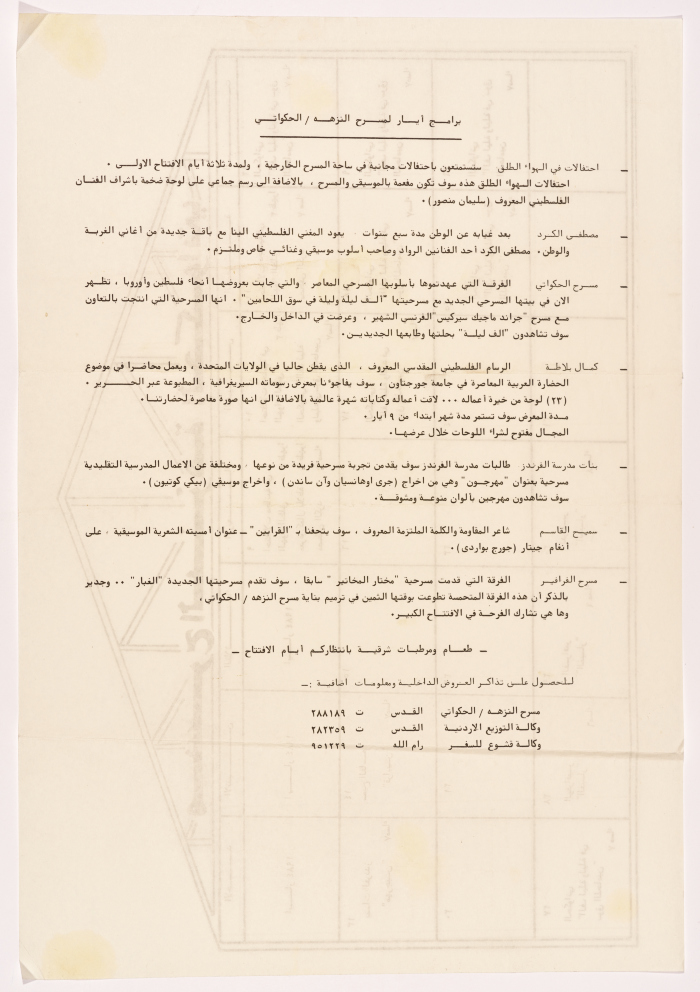 برامـج أيــار لمســرح النزهــه / الحكواتــي
ـ احتفالات في الهواء الطلق ستستمتعون باحتفالات مجانية في ساحة المسرح الخارجية ، ولمدة ثلاثة أيام الافتتاح الاولــى .
احتفالات الــهواء الطلق هذه سوف تكون مفعمة بالموسيقى والمسرح ، بالاضافة الى رسم جماعي على لوحة ضخمة باشراف الفنــان
الفلسطيني المعروف (سليمان منصور) .
ـ مصطفـى الكـرد بعد غيابه عن الوطن مدة سبع سنوات . يعود المغني الفلسطيني الينا مع باقــة جديدة من أغاني الغربــة
والوطن . مصطفى الكرد أحد الفنانين الرواد وصاحب أسلوب موسيقي وغنائــي خاص وملتــزم .
ـ مســرح الحكواتي الفرقــة التي عهدتموها بأسلوبها المسرحي المعاصر . والتي جابت بعروضهــا أنحاء فلسطين وأوروبا ، تظــهر
الان في بيتها المسرحي الجديد مع مسرحيتها "ألــف ليلة وليلة في سوق اللحامين" . انها المسرحية التي انتجت بالتعاون
مــع مسرح "جراند ماجيك سيركس" الفرنسي الشهير ، وعرضت في الداخل والخــارج .
سوف تشاهدون "الف ليلــة" بحلتها وطابعها الجديديــن .
ـ كمــال بلاطــة الرسام الفلسطيني المقدسي المعروف ، الذى يقطن حاليا في الولايات المتحدة ، ويعمل محاضــرا في موضوع
الحضارة العربية المعاصرة في جامعة جورجتاون ، سوف يفاجوءنا بمعرض رسوماته السيريغرافية ، المطبوعة عبر الحــــرير .
(٢٣) لوحة من خيرة أعماله ٠٠٠ لاقت أعماله وكتاباته شهرة عالمية بالاضافة الى انها صورة معاصرة لحضارتنــا .
مــدة المعرض سوف تستمر مدة شهر ابتداء من ٩ أيار .
المجــال مفتوح لشراء اللوحات خلال عرضهــا .
ـ بنات مدرسة الفرندز طالبات مدرسة الفرندز سوف يقدمن تجربة مسرحية فريدة من نوعها . ومختلفة عن الاعمال المدرسية التقليدية
مسرحية بعنوان "مهرجــون" وهي من اخراج (جرى اوهانسيان وآن ساندن) ، واخراج موسيقي (بيكي كوتيون) .
سوف تشاهدون مهرجين بألوان منوعــة ومشوقــة .
ـ سميــح القاســم شاعر المقاومة والكلمة الملتزمة المعروف ، سوف يتحفنا بـ "القرابين" ـ عنوان أمسيته الشعرية الموسيقية . على
أنغام جيتار (جورج بواردى) .
ـ مسرح الغرافيــر الفرقة التي قدمت مسرحية "مختار المخاتير" سابقا ، سوف تقدم مسرحيتها الجديدة "الغبار" ٠٠ وجدير
بالذكر أن هذه الفرقة المتحمسة تطوعت بوقتها الثمين في ترميم بناية مسرح النزهه / الحكواتي ،
وها هي تشارك الفرحــة في الافتتــاح الكبيــر .
ـ طعــام ومرطبــات شرقيــة بانتظاركــم أيــام الافتتاح ـ
للحصــول علــى تذاكــر العــروض الداخليــة ومعلومــات اضافيــة :ـ
مسرح النزهــه / الحكواتي القــدس ت ٢٨٨١٨٩
وكالــة التوزيع الاردنيــة القــدس ت ٢٨٢٣٥٩
وكالــة قشــوع للسفــر رام الله ت ٩٥١٢٢٩